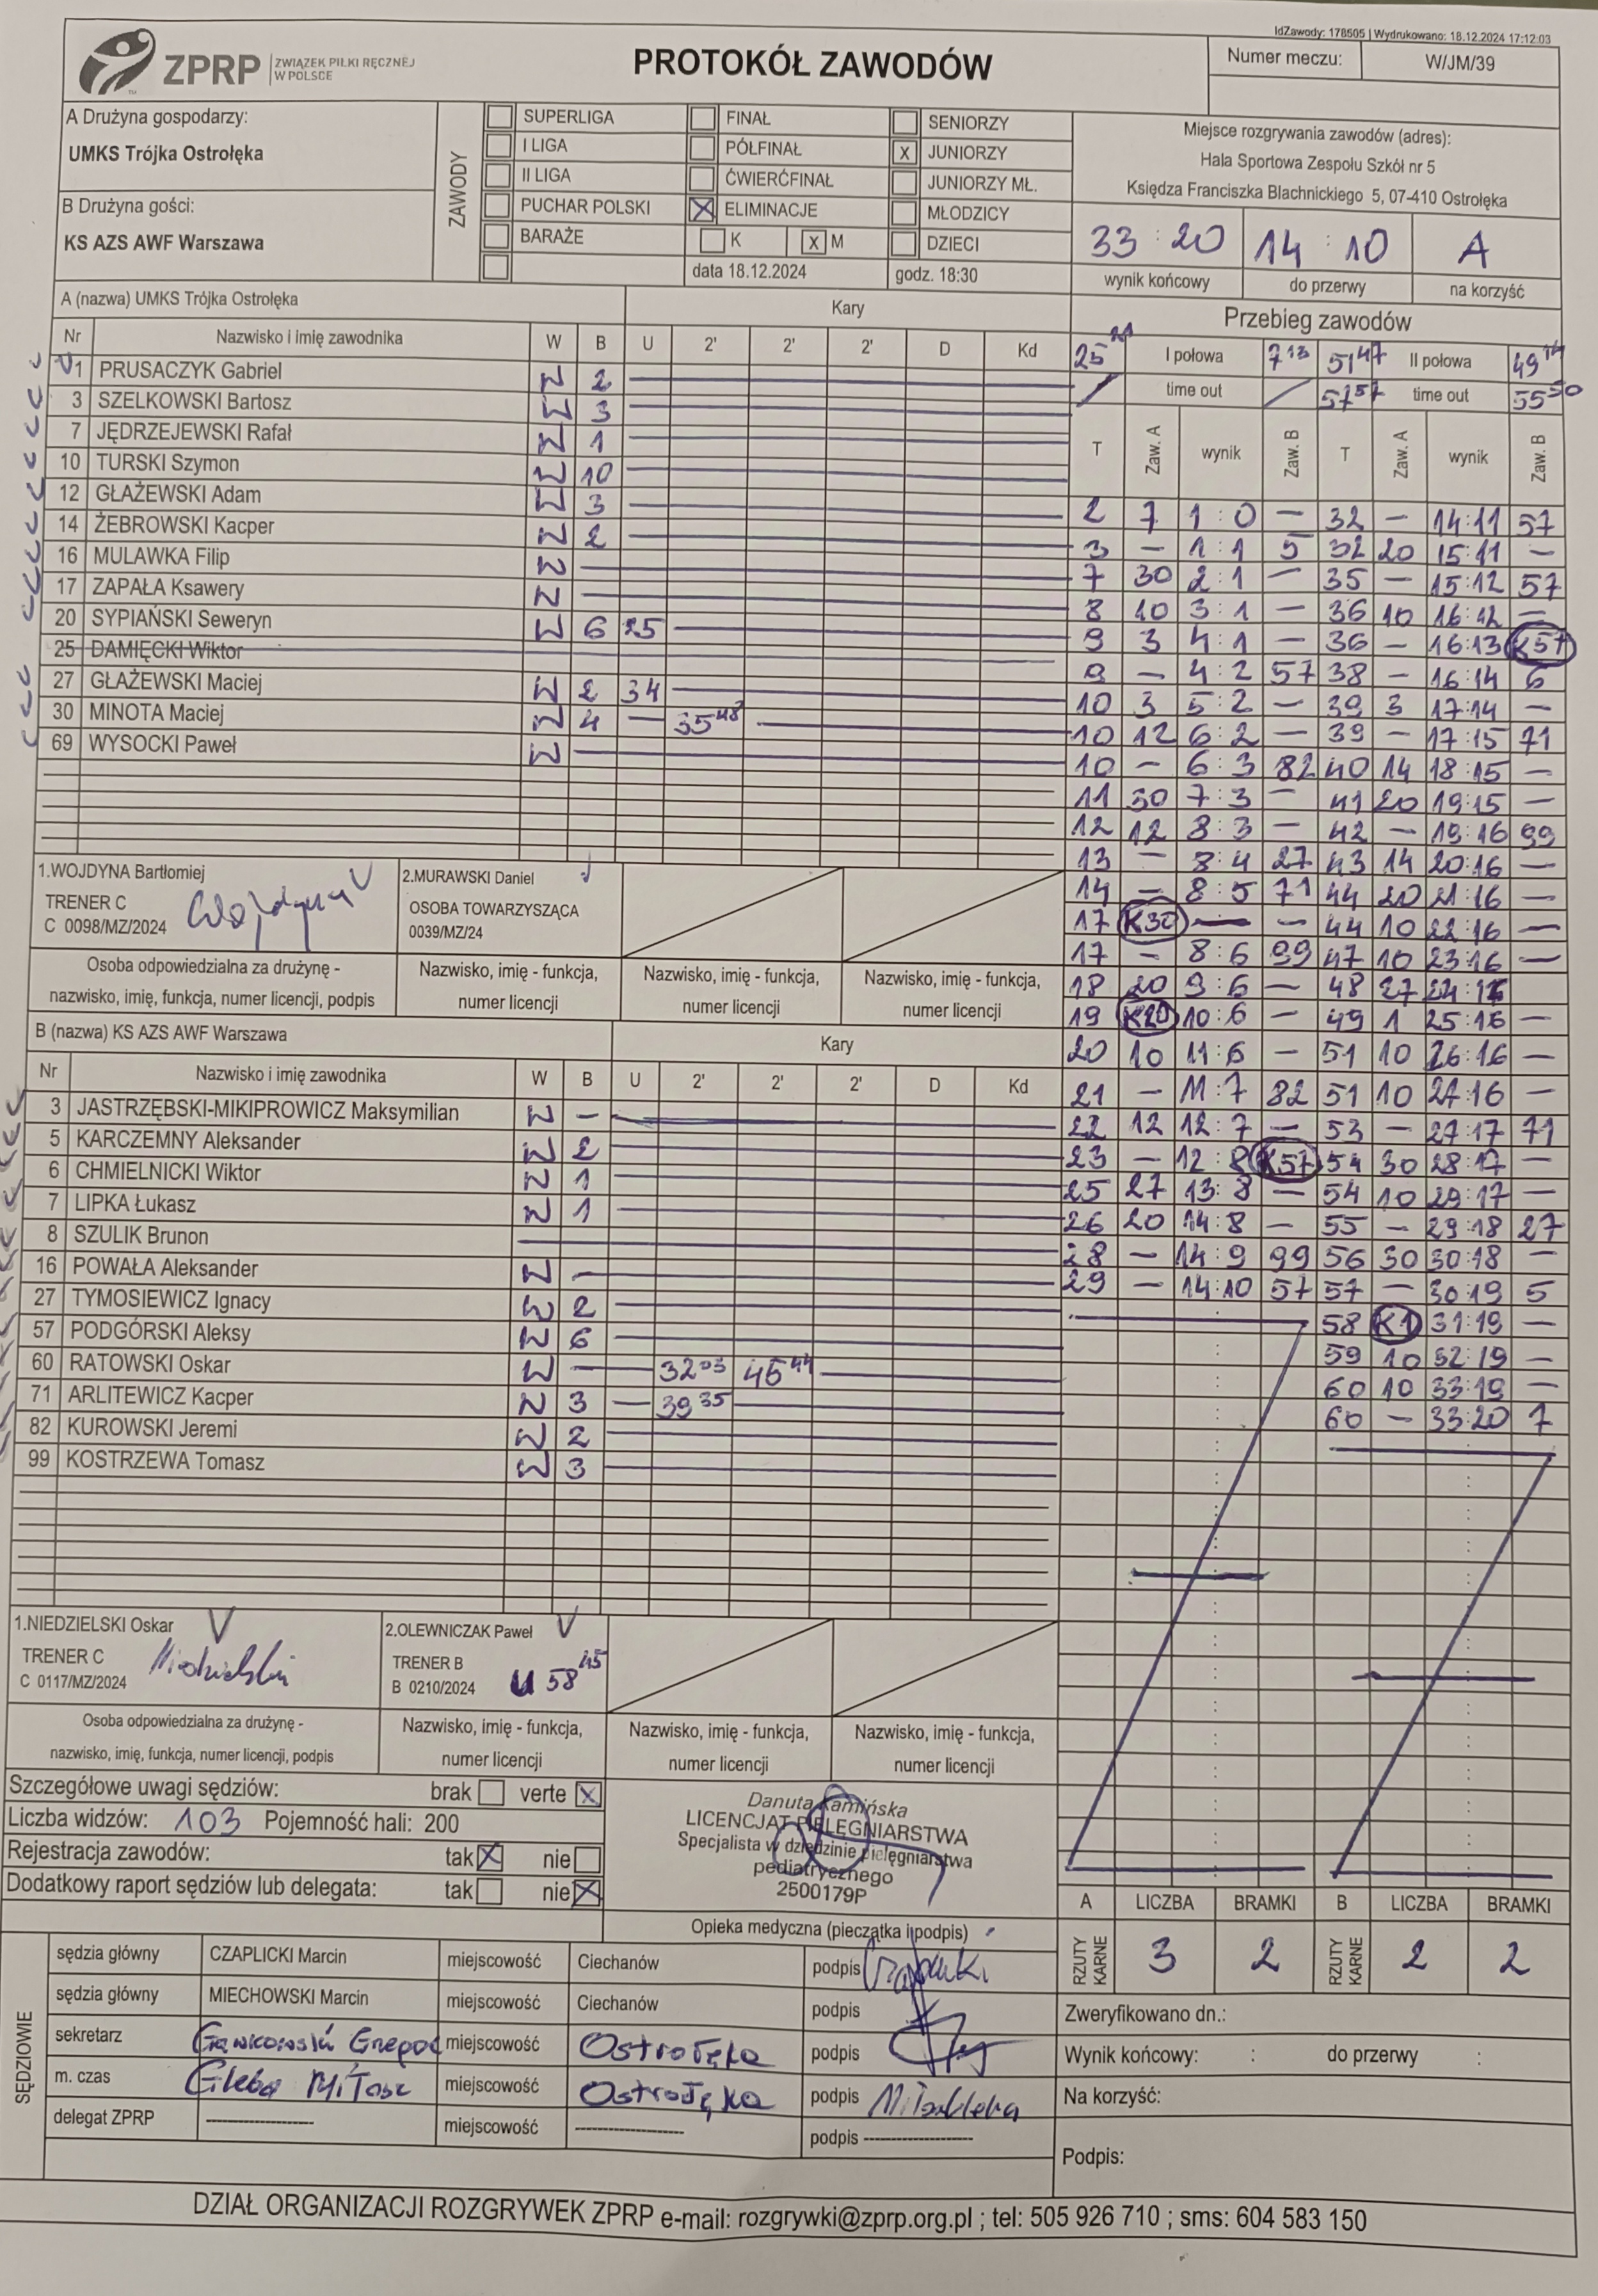 IdZawody: 178505 | Wydrukowano: 18.12.2024 17:12:03
ZPRP ZWIĄZEK PIŁKI RĘCZNEJ W POLSCE
PROTOKÓŁ ZAWODÓW
Numer meczu: W/JM/39
A Drużyna gospodarzy:
UMKS Trójka Ostrołęka
B Drużyna gości:
KS AZS AWF Warszawa
ZAWODY
SUPERLIGA FINAŁ SENIORZY
I LIGA PÓŁFINAŁ X JUNIORZY
II LIGA ĆWIERĆFINAŁ JUNIORZY MŁ.
PUCHAR POLSKI X ELIMINACJE MŁODZICY
BARAŻE K X M DZIECI
data 18.12.2024 godz. 18:30
Miejsce rozgrywania zawodów (adres):
Hala Sportowa Zespołu Szkół nr 5
Księdza Franciszka Blachnickiego 5, 07-410 Ostrołęka
33 : 20 14 : 10 A
wynik końcowy do przerwy na korzyść
A (nazwa) UMKS Trójka Ostrołęka Kary
Nr Nazwisko i imię zawodnika W B U 2' 2' 2' D Kd
1 PRUSACZYK Gabriel W 2
3 SZELKOWSKI Bartosz W 3
7 JĘDRZEJEWSKI Rafał W 1
10 TURSKI Szymon W 10
12 GŁAŻEWSKI Adam W 3
14 ŻEBROWSKI Kacper W 2
16 MULAWKA Filip W
17 ZAPAŁA Ksawery W
20 SYPIAŃSKI Seweryn W 6 25
25 DAMIĘCKI Wiktor
27 GŁAŻEWSKI Maciej W 2 34
30 MINOTA Maciej W 4 — 35 48
69 WYSOCKI Paweł W
1.WOJDYNA Bartłomiej
TRENER C
C 0098/MZ/2024
Wojdyna V
2.MURAWSKI Daniel
OSOBA TOWARZYSZĄCA
0039/MZ/24
Osoba odpowiedzialna za drużynę -
nazwisko, imię, funkcja, numer licencji, podpis
Nazwisko, imię - funkcja,
numer licencji
Nazwisko, imię - funkcja,
numer licencji
Nazwisko, imię - funkcja,
numer licencji
B (nazwa) KS AZS AWF Warszawa Kary
Nr Nazwisko i imię zawodnika W B U 2' 2' 2' D Kd
3 JASTRZĘBSKI-MIKIPROWICZ Maksymilian W -
5 KARCZEMNY Aleksander W 2
6 CHMIELNICKI Wiktor W 1
7 LIPKA Łukasz W 1
8 SZULIK Brunon
16 POWAŁA Aleksander W -
27 TYMOSIEWICZ Ignacy W 2
57 PODGÓRSKI Aleksy W 6
60 RATOWSKI Oskar W — 32 03 45 44
71 ARLITEWICZ Kacper W 3 — 39 35
82 KUROWSKI Jeremi W 2
99 KOSTRZEWA Tomasz W 3
1.NIEDZIELSKI Oskar V
TRENER C
C 0117/MZ/2024
Niedzielski
2.OLEWNICZAK Paweł V
TRENER B
B 0210/2024
U 58 45
Osoba odpowiedzialna za drużynę -
nazwisko, imię, funkcja, numer licencji, podpis
Nazwisko, imię - funkcja,
numer licencji
Nazwisko, imię - funkcja,
numer licencji
Nazwisko, imię - funkcja,
numer licencji
Przebieg zawodów
25 21 I połowa 7 13 51 47 II połowa 49 14
time out 57 57 time out 55 50
T Zaw. A wynik Zaw. B T Zaw. A wynik Zaw. B
2 7 1 : 0 — 32 — 14:11 57
3 — 1 : 1 5 32 20 15:11 —
7 30 2 : 1 — 35 — 15:12 57
8 10 3 : 1 — 36 10 16:12 —
9 3 4 : 1 — 36 — 16:13 K57
9 — 4 : 2 57 38 — 16:14 6
10 3 5 : 2 — 39 3 17:14 —
10 12 6 : 2 — 39 — 17:15 71
10 — 6 : 3 82 40 14 18:15 —
11 30 7 : 3 — 41 20 19:15 —
12 12 8 : 3 — 42 — 19:16 99
13 — 8 : 4 27 43 14 20:16 —
14 — 8 : 5 71 44 20 21:16 —
17 K30 — — 44 10 22:16 —
17 — 8 : 6 99 47 10 23:16 —
18 20 9 : 6 — 48 27 24:16
19 K20 10 : 6 — 49 1 25:16 —
20 10 11 : 6 — 51 10 26:16 —
21 — 11 : 7 82 51 10 27:16 —
22 12 12 : 7 — 53 — 27:17 71
23 — 12 : 8 K57 54 30 28:17 —
25 27 13 : 8 — 54 10 29:17 —
26 20 14 : 8 — 55 — 29:18 27
28 — 14 : 9 99 56 30 30:18 —
29 — 14:10 57 57 — 30:19 5
58 K1 31:19 —
59 10 32:19 —
60 10 33:19 —
60 — 33:20 7
Szczegółowe uwagi sędziów: brak verte X
Liczba widzów: 103 Pojemność hali: 200
Rejestracja zawodów: tak X nie
Dodatkowy raport sędziów lub delegata: tak nie X
Danuta Kamińska
LICENCJAT PIELĘGNIARSTWA
Specjalista w dziedzinie pielęgniarstwa
pediatrycznego
2500179P
Opieka medyczna (pieczątka i podpis)
A LICZBA BRAMKI B LICZBA BRAMKI
RZUTY KARNE 3 2 RZUTY KARNE 2 2
SĘDZIOWIE
sędzia główny CZAPLICKI Marcin miejscowość Ciechanów podpis
sędzia główny MIECHOWSKI Marcin miejscowość Ciechanów podpis
sekretarz miejscowość Ostrołęka podpis
m. czas Gleba Miłosz miejscowość Ostrołęka podpis Miłosz Gleba
delegat ZPRP miejscowość podpis
Zweryfikowano dn.:
Wynik końcowy: : do przerwy :
Na korzyść:
Podpis:
DZIAŁ ORGANIZACJI ROZGRYWEK ZPRP e-mail: rozgrywki@zprp.org.pl ; tel: 505 926 710 ; sms: 604 583 150